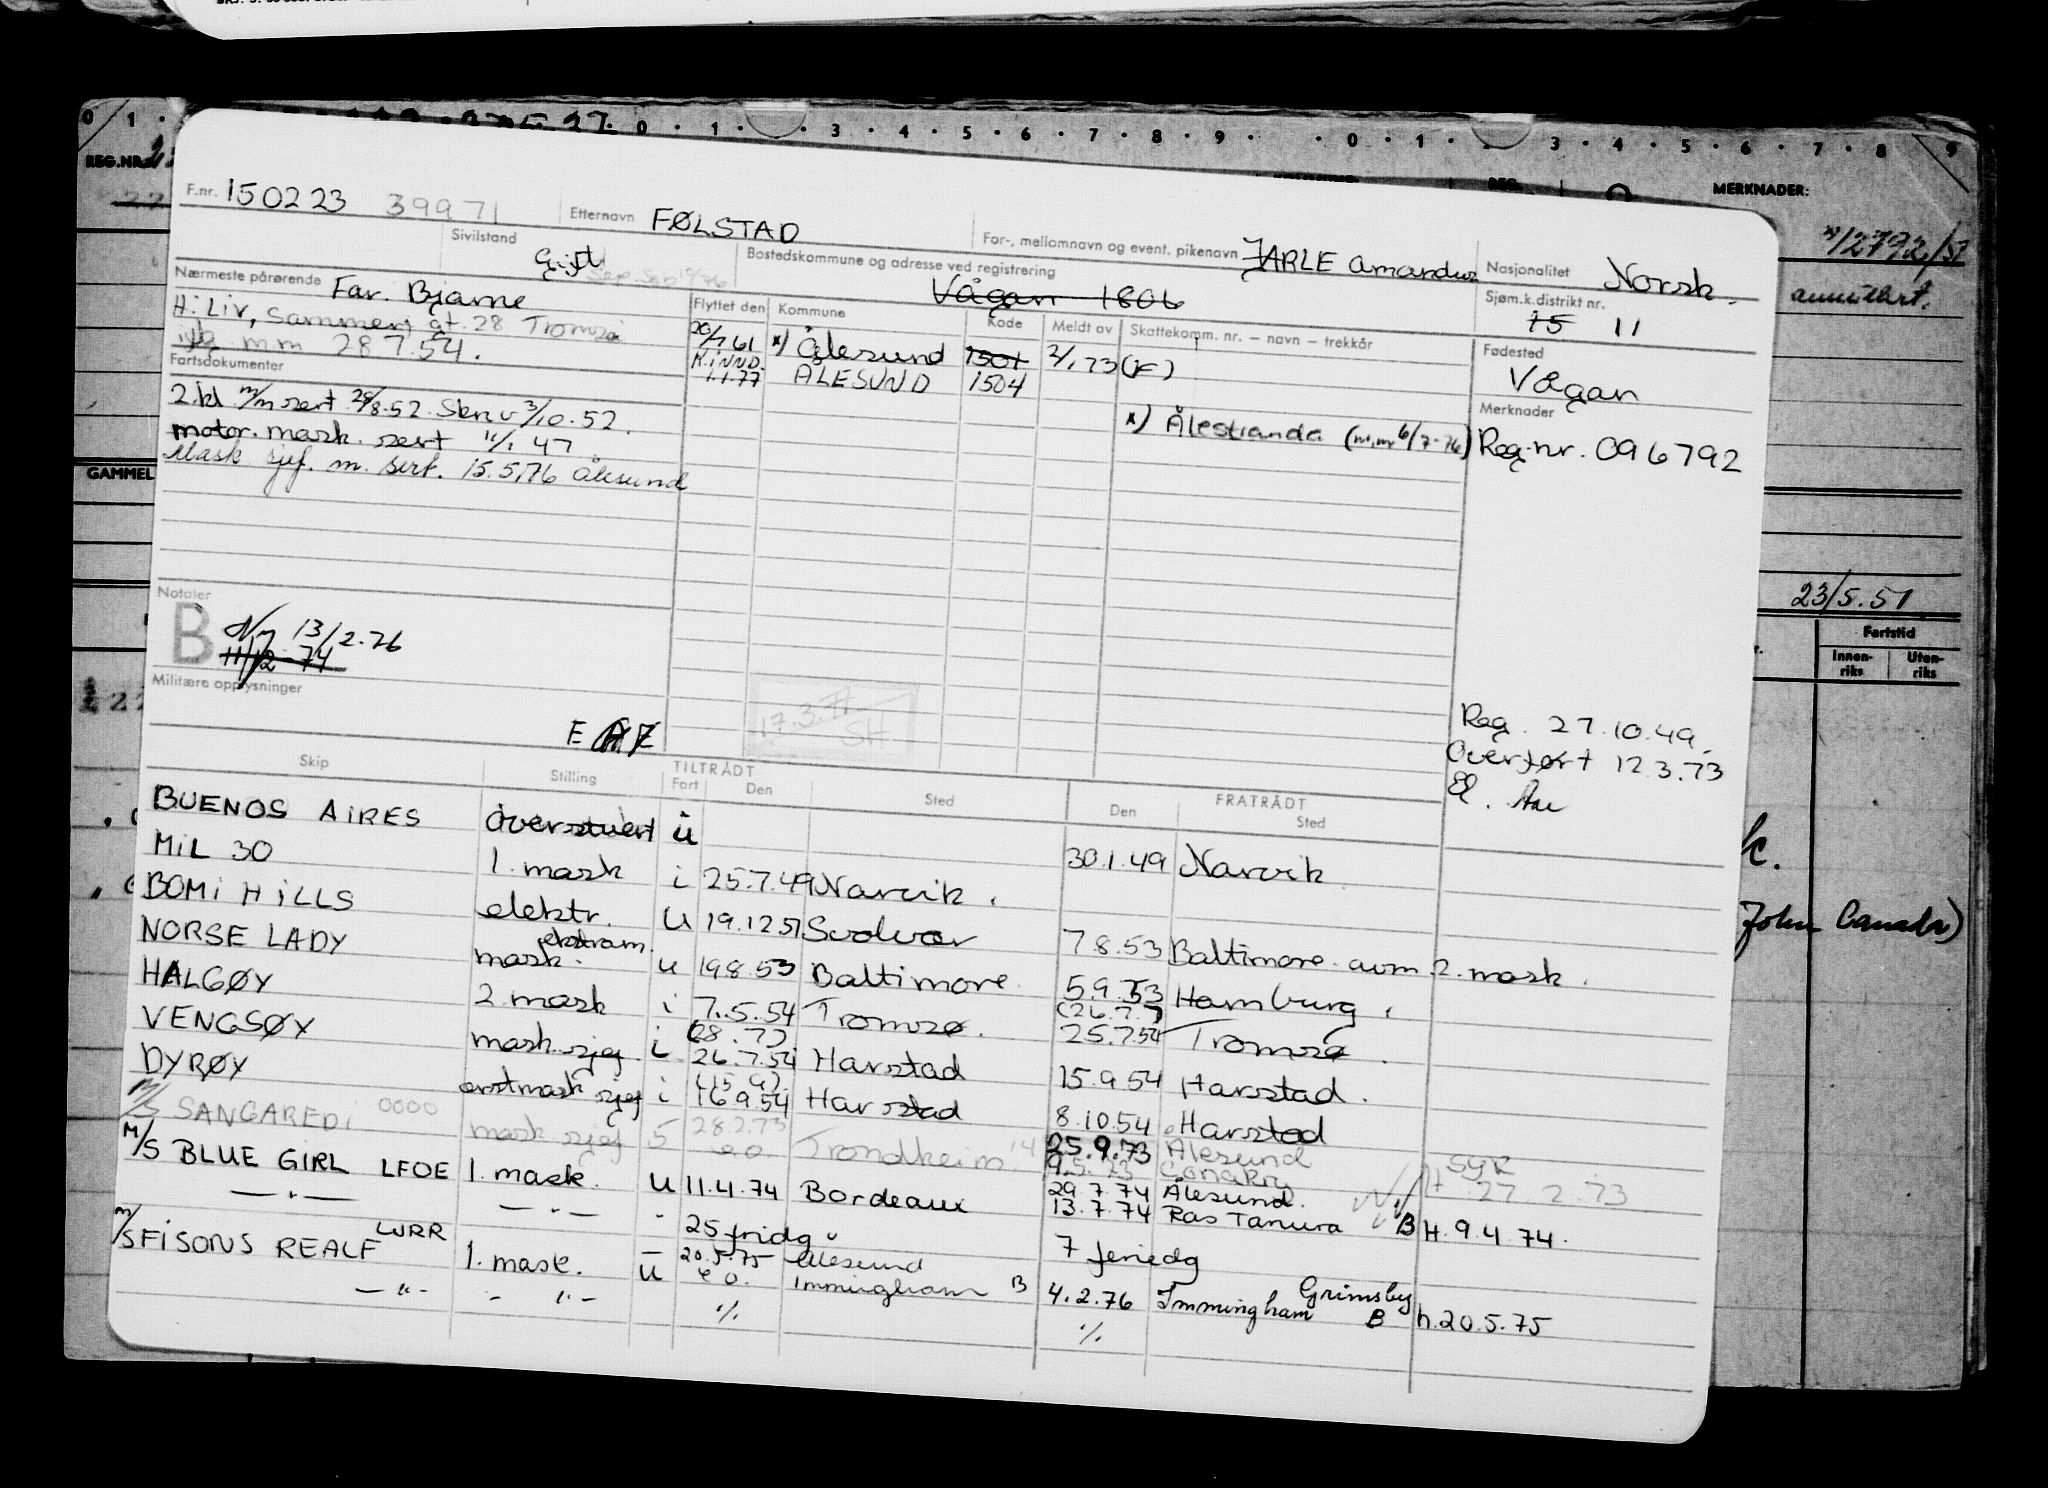 0 1 · 0 · 1 · 3 · 4 · 5 · 6 · 7 · 8 · 9 · 0 · 1 · 3 · 4 · 5 · 6 · 7 · 8 9
REG.NR.
MERKNADER:
2792/51
GAMMEL
23/5.51
Fartstid
Innen-riks Uten-riks
John Canada)
F.nr. 150223 39971 Etternavn FØLSTAD For-, mellomnavn og event. pikenavn JARLE Amandus Nasjonalitet Norsk.
Sivilstand Gift Bostedskommune og adresse ved registrering Vågan 1806 Sjøm.k.distrikt nr. 15 11
Nærmeste pårørende Far. Bjarne
H. Liv, Sammerj gt. 28 Tromsø
m.m 28 7.54.
Flyttet den Kommune Kode Meldt av Skattekomm. nr. – navn – trekkår
20/1 61 x) Ålesund 1501 2/1 73 (F)
K.INND. 1.1.77 ÅLESUND 1504
x) Ålestranda (m.m 6/7-76)
Fødested Vågan
Merknader Reg.nr. 096792
Fartsdokumenter
2.kl m/m sert 28/8.52. Skr. v 3/10.52.
motor. mask. sert 11/1 47.
Mask sjef. m. sert. 15.5.76 Ålesund
Notater
B Ny 13/2.76
11/12-74
Militære opplysninger
17.3.77 SH
Reg. 27.10.49.
Overført 12.3.73
Skip Stilling TILTRÅDT Fart Den Sted FRATRÅDT Den Sted
BUENOS AIRES overstuert u 30.1.49 Narvik
MIL 30 1. mask i 25.7.49 Narvik.
BOMI HILLS elektr. u 19.12.51 Svolvær 7.8.53 Baltimore. avm. 2. mask.
NORSE LADY ekstram. mask. u 19.8.53 Baltimore 5.9.53 Hamburg.
HALGØY 2. mask i 7.5.54 Tromsø. (26.7.?) 25.7.54 Tromsø.
VENGSØY mask. sjef. i (28.7?) 26.7.54 Harstad 15.9.54 Harstad.
DYRØY enstmask sjef i (15.9). 16.9.54 Harstad 8.10.54 Harstad
M/S SANGAREDI 0000 mask sjef 5 28.2.73 Trondheim 25.9.73 Ålesund
9.5.73 Conakry SYK H. 27.2.73
M/S BLUE GIRL LFOE 1. mask. u 11.4.74 Bordeaux 29.7.74 Ålesund.
— " — — " — - 13.7.74 Ras Tanura B H. 9.4.74.
25 fridg. 7 feriedg
M/S FISONS REALF LURR 1. mask. — 20.5.75 Ålesund Grimsby
u e.o. Immingham B 4.2.76 Immingham B h.20.5.75
— " — - " — ./. ./.